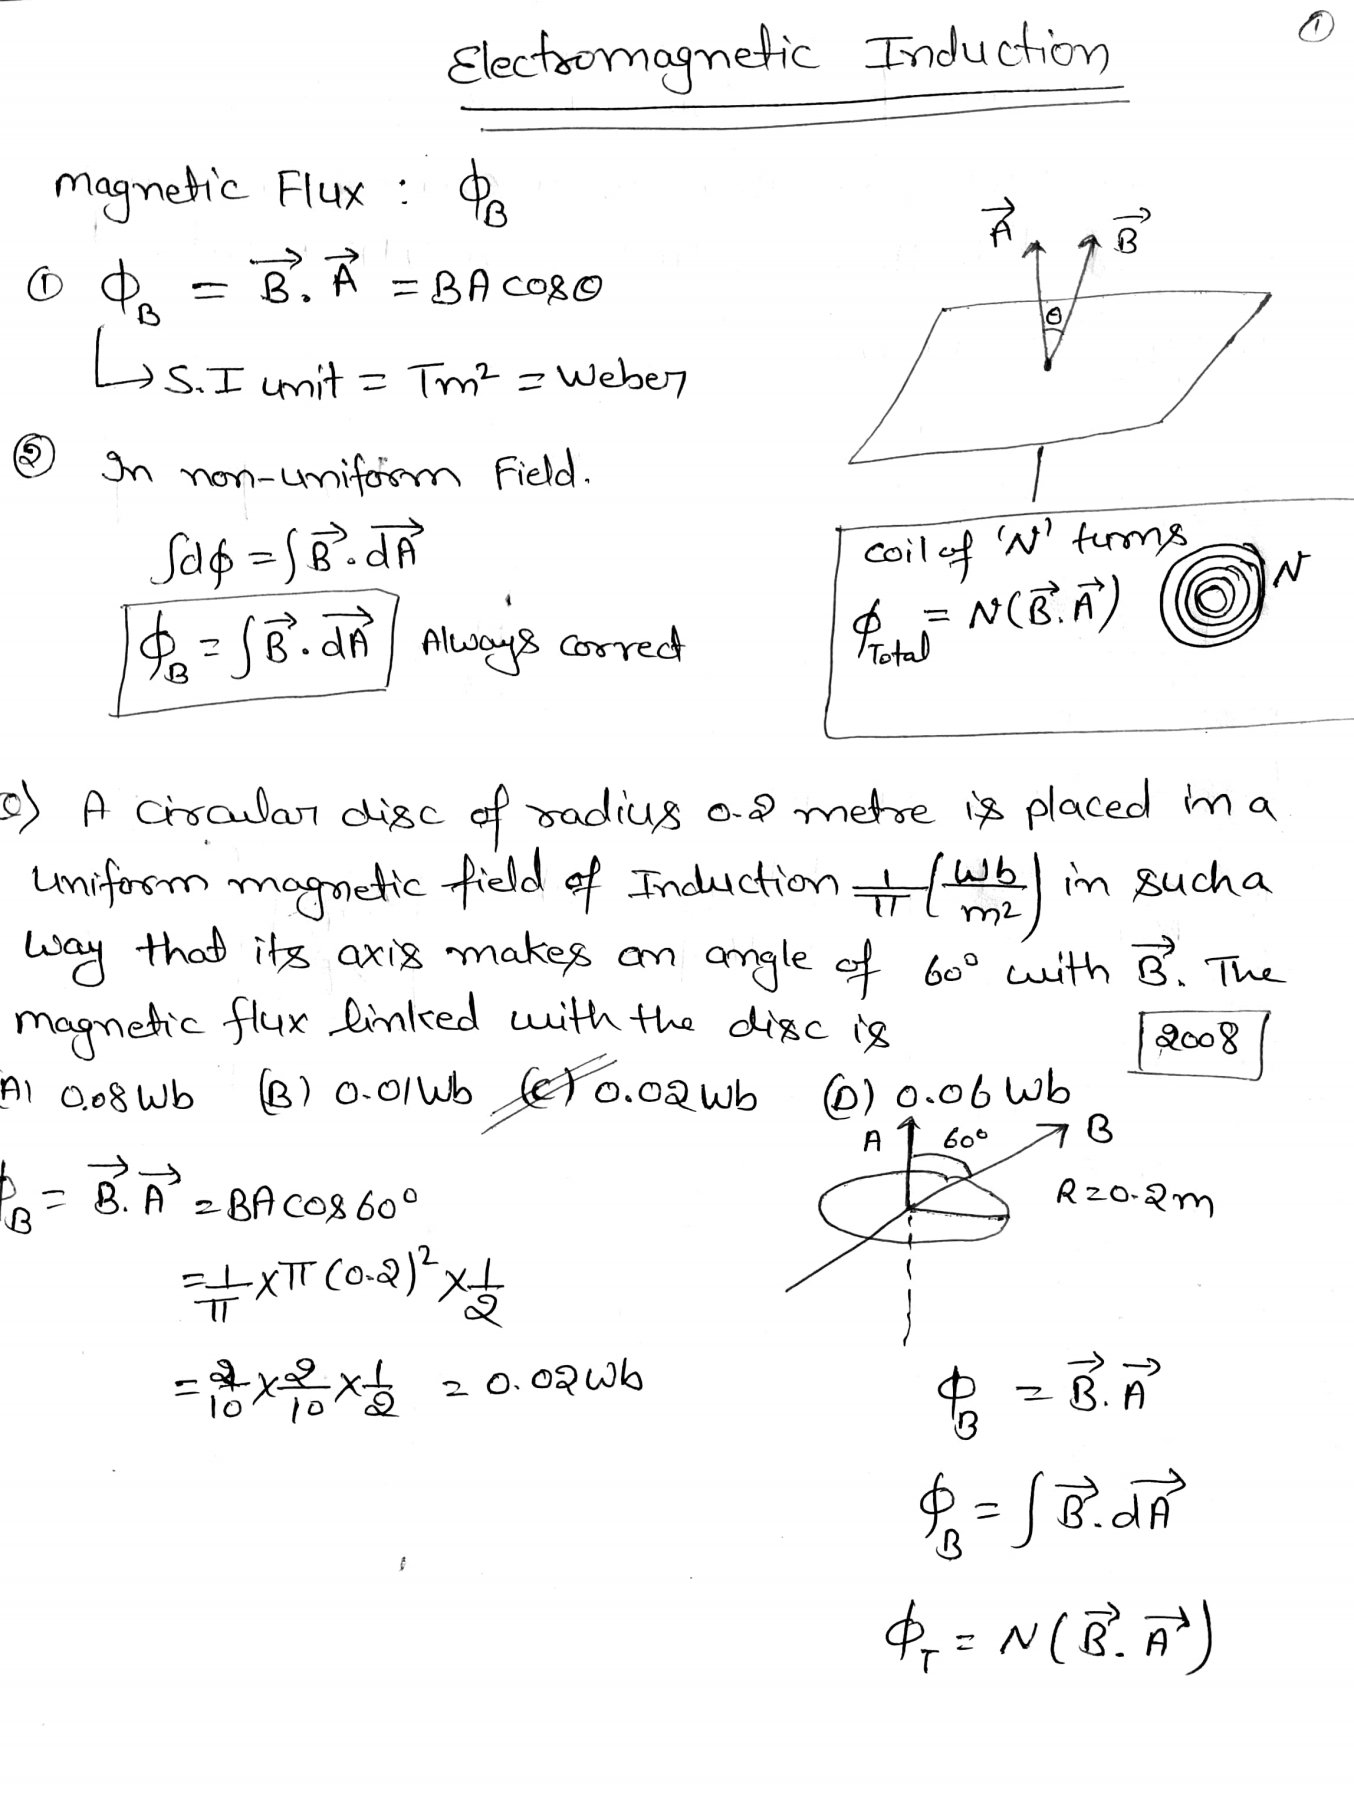 ①
Electromagnetic Induction
magnetic Flux : ϕ_B
① ϕ_B = B⃗.A⃗ = BA cosθ
↳ S.I unit = Tm² = Weber
A⃗ B⃗
θ
② In non-uniform Field.
∫dϕ = ∫B⃗.dA⃗
ϕ_B = ∫B⃗.dA⃗ Always correct
coil of 'N' turns
ϕ_Total = N(B⃗.A⃗) N
Q) A circular disc of radius 0.2 metre is placed in a
uniform magnetic field of Induction 1/π (Wb/m²) in such a
way that its axis makes an angle of 60° with B⃗. The
magnetic flux linked with the disc is 2008
(A) 0.08 Wb (B) 0.01 Wb (C) 0.02 Wb (D) 0.06 Wb
A 60° B
R=0.2m
ϕ_B = B⃗.A⃗ = BA cos 60°
= 1/π × π (0.2)² × 1/2
= 2/10 × 2/10 × 1/2 = 0.02 Wb
ϕ_B = B⃗.A⃗
ϕ_B = ∫B⃗.dA⃗
ϕ_T = N(B⃗.A⃗)